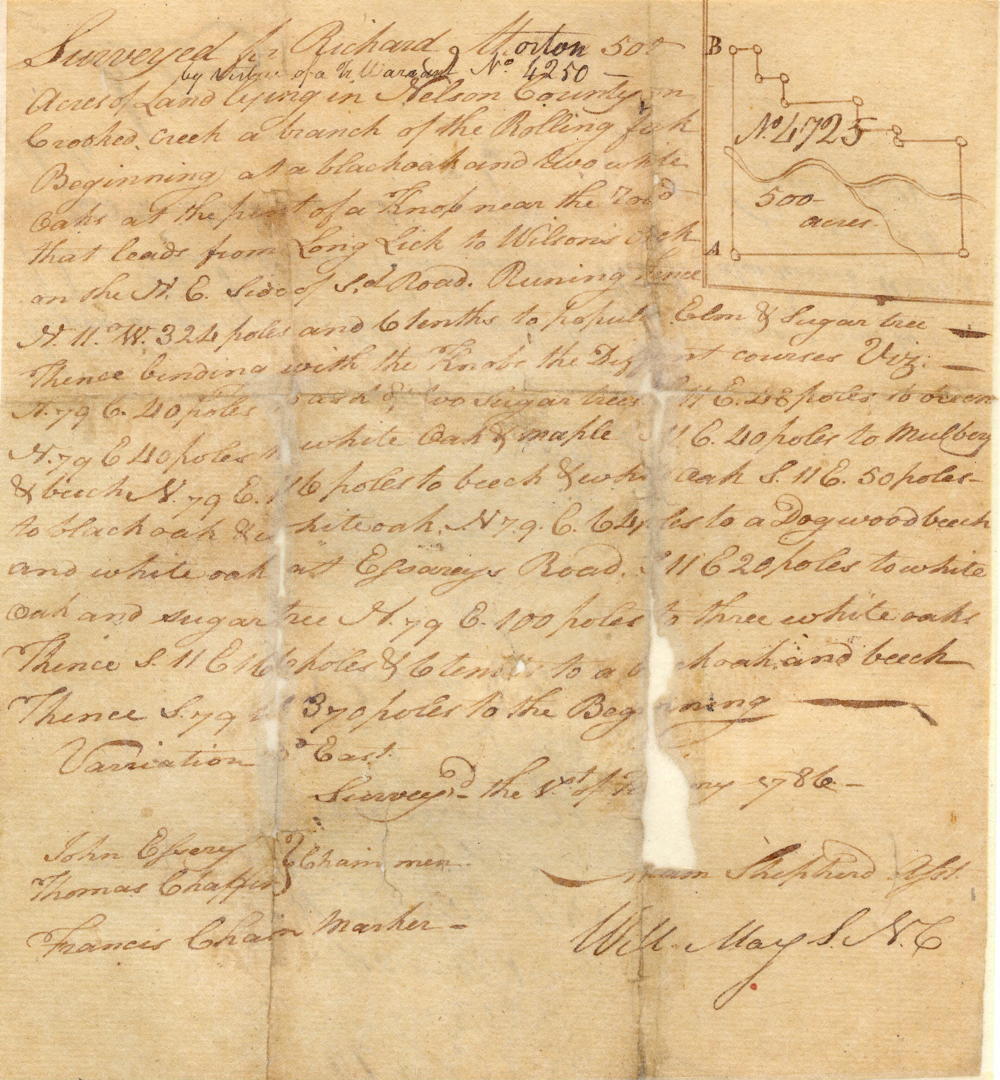 Surveyed for Richard Morton 500
by Virtue of a Tr Warrant No. 4250 —
Acres of Land lying in Nelson County on
Crooked creek a branch of the Rolling fork
Beginning at a blackoak and two white
Oaks at the point of a Knob near the Road
that leads from Long Lick to Wilson's Creek
on the N. E. Side of Sd Road. Runing thence
N. 11° W. 324 poles and 6 tenths to popular Elm & Sugar tree
Thence binding with the Knobs the Different courses Viz.
N. 79 E. 40 poles ash & two sugar trees 11 E. 48 poles to
N. 79 E 40 poles to white Oak & maple 11 E. 40 poles to Mulbery
& beech N. 79 E. 6 poles to beech & white oak S. 11 E. 50 poles
to black oak & white oak. N 79. E. 64 poles to a Dogwood beech
and white oak at Essarey's Road. S 11 E 20 poles to white
Oak and sugar tree N. 79 E. 100 poles to three white oaks
Thence S. 11 E 166 poles & 6 tenths to a blackoak and beech
Thence S. 79 W 370 poles to the Beginning
Varriation East.
Survey'd the 1st of 1786 —
John Essery
Thomas Chaffin } Chain men
Francis Chain Marker —
Shepherd Asst.
Will. May S. N. C
B
No. 4725
500
acres
A